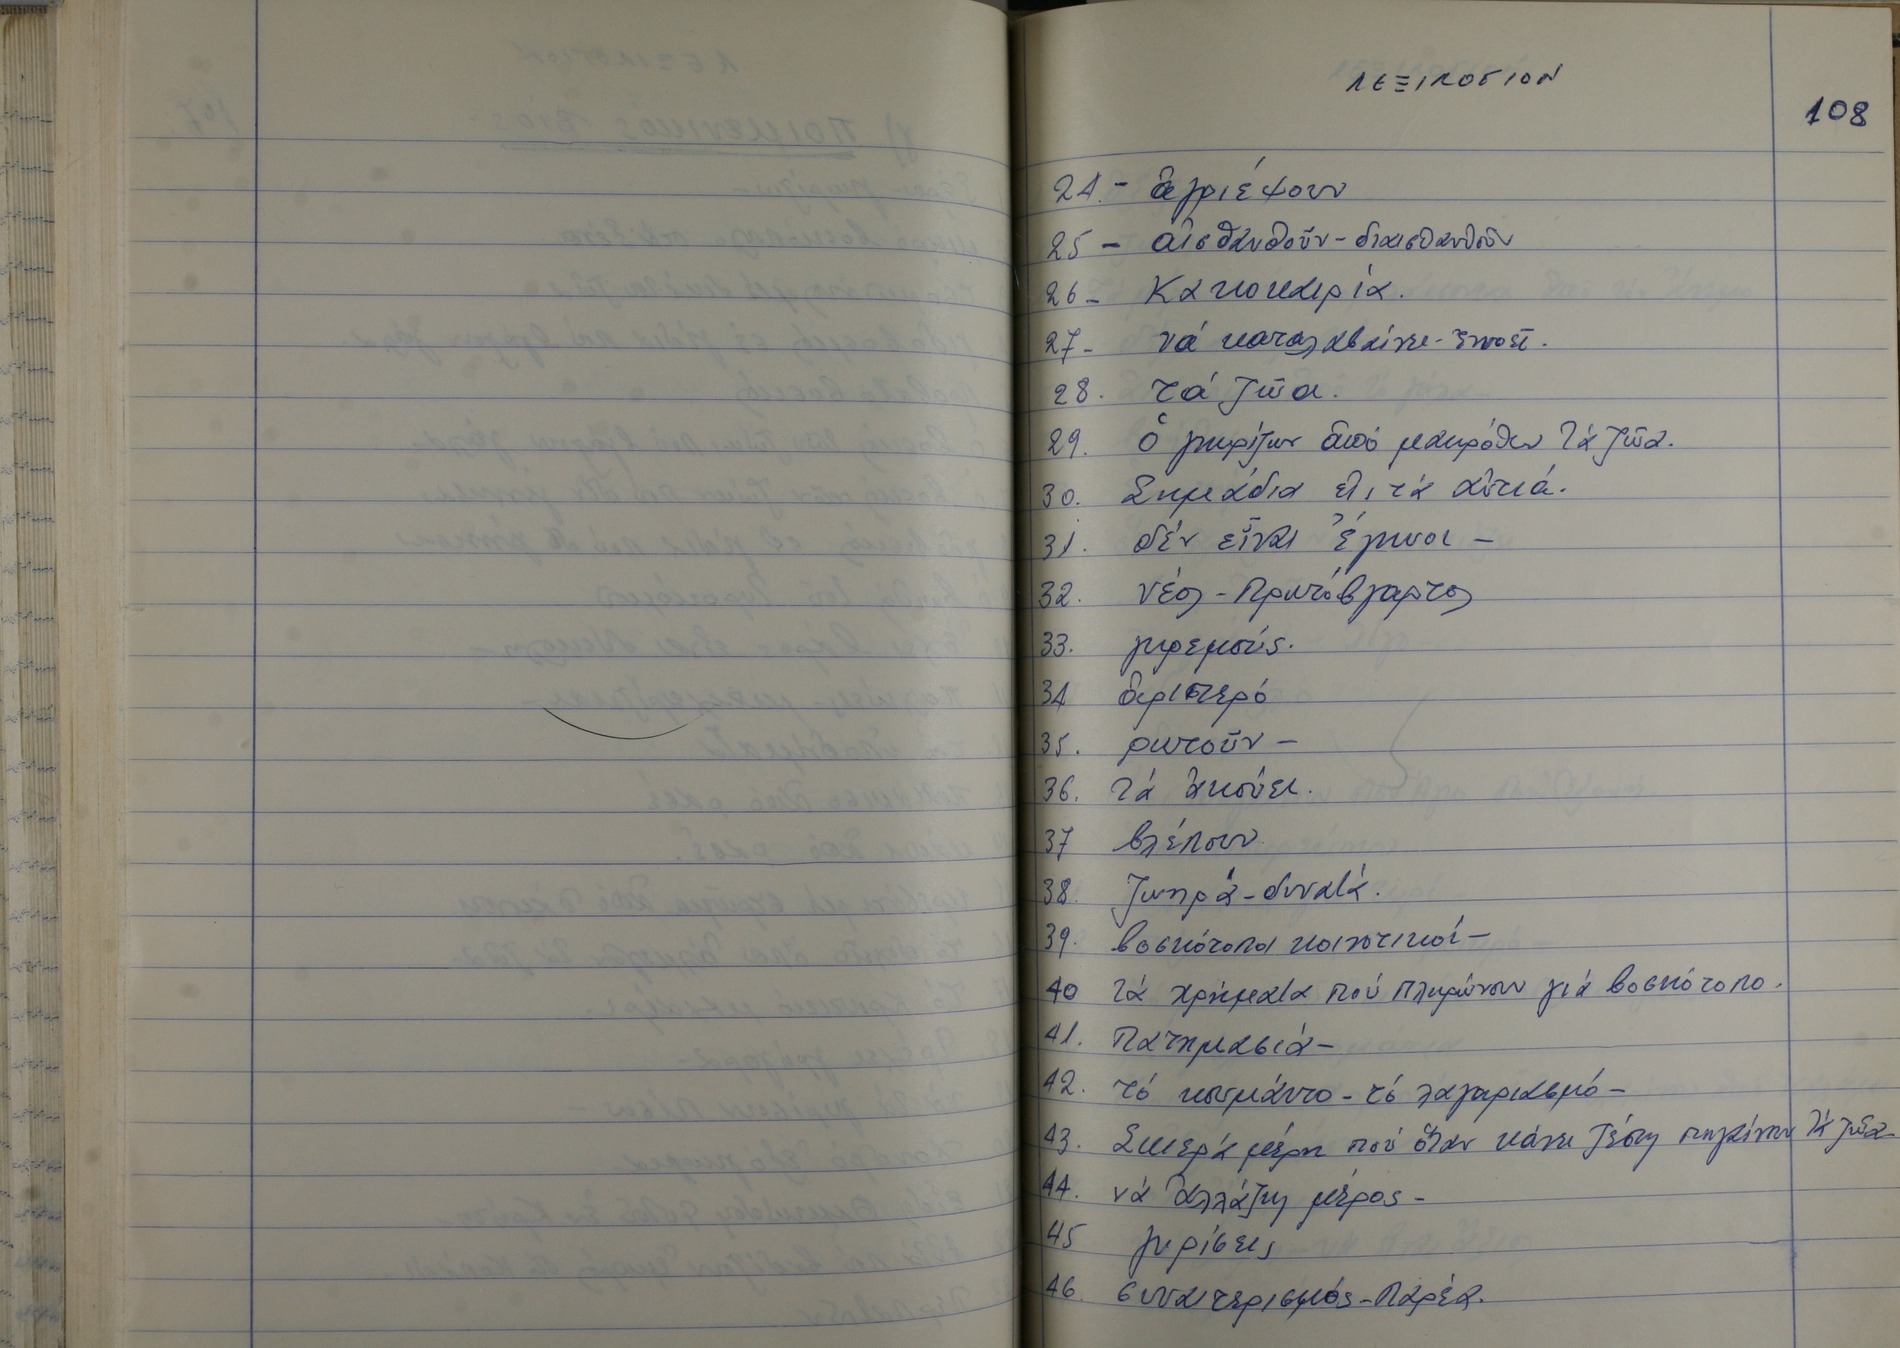 ΛΕΞΙΛΟΓΙΟΝ
108
24.- ἀγριέψουν
25 - αἰσθανθοῦν - διαισθανθοῦν
26 - Κακοκαιρία.
27 - νά καταλαβαίνει - ἐννοεῖ.
28. τά ζῶα.
29. ὁ γνωρίζων ἀπό μακρόθεν τά ζῶα.
30. Σημάδια εἰς τά αὐτιά.
31. δέν εἶναι ἔγκυοι -
32. νέος - Πρωτόβγαρτος
33. γκρεμούς.
34 ἀριστερό
35. ρωτοῦν -
36. τά ἀκούει.
37 βλέπουν
38. ζωηρά - δυνατά.
39. βοσκότοποι κοινοτικοί -
40 τά χρήματα πού πληρώνουν γιά βοσκότοπο.
41. Πατημασιά -
42. τό κουμάντο - τό λογαριασμό -
43. Σκιερά μέρη πού ὅταν κάνει ζέστη πηγαίνουν τά ζῶα -
44. νά ἀλλάζῃ μέρος -
45 γυρίσεις
46. συναιτερισμός - Παρέα.